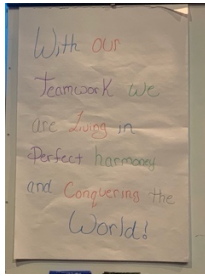 With our
teamwork we
are Living in
Perfect harmoney
and Conquering the
World!